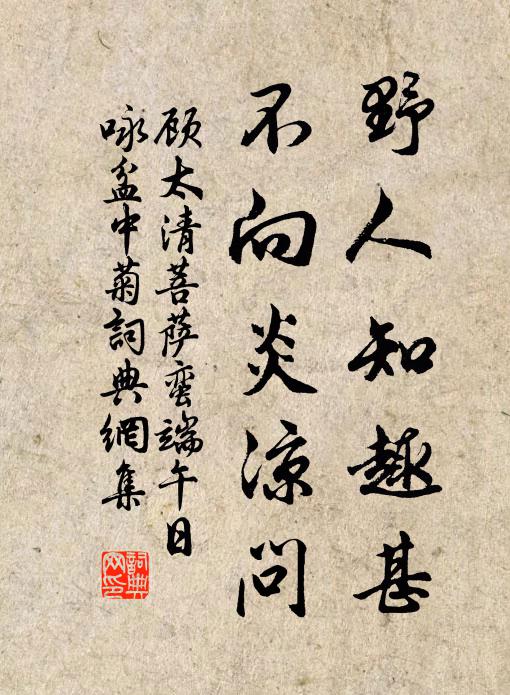 野人知趣甚
不向炎凉问
顾太清菩萨蛮端午日
咏盆中菊詞典網集
詞典网印